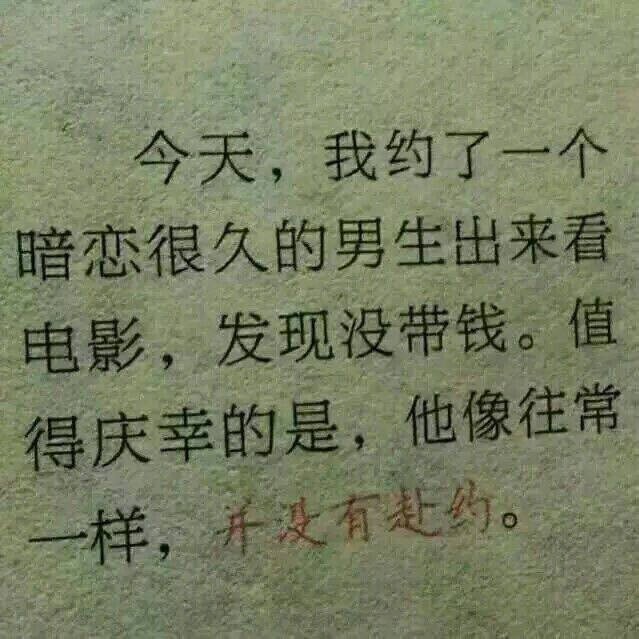 今天，我约了一个
暗恋很久的男生出来看
电影，发现没带钱。值
得庆幸的是，他像往常
一样，并没有赴约。